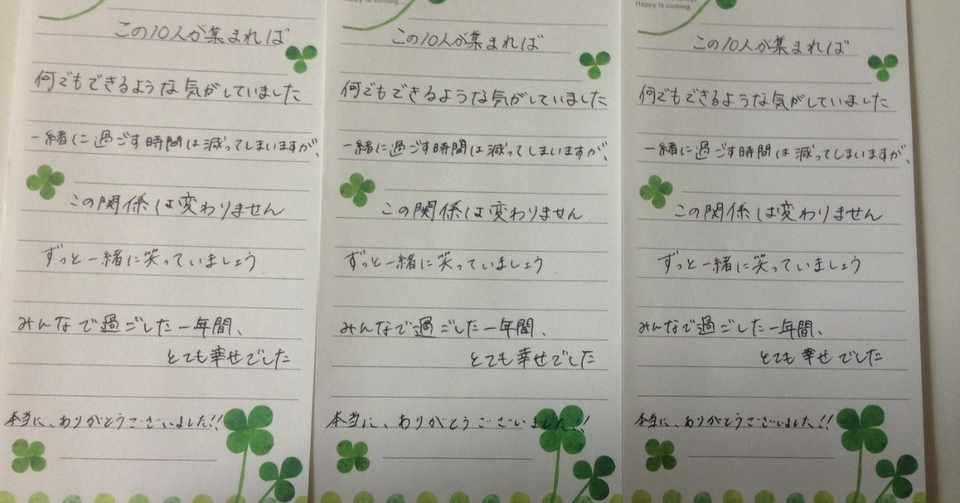 Happy is coming...
この10人が集まれば
何でもできるような気がしていました
一緒に過ごす時間は減ってしまいますが、
この関係は変わりません
ずっと一緒に笑っていましょう
みんなで過ごした一年間、
とても幸せでした
本当に、ありがとうございました!!
Happy is coming...
この10人が集まれば
何でもできるような気がしていました
一緒に過ごす時間は減ってしまいますが、
この関係は変わりません
ずっと一緒に笑っていましょう
みんなで過ごした一年間、
とても幸せでした
本当に、ありがとうございました!!
Happy is coming...
この10人が集まれば
何でもできるような気がしていました
一緒に過ごす時間は減ってしまいますが、
この関係は変わりません
ずっと一緒に笑っていましょう
みんなで過ごした一年間、
とても幸せでした
本当に、ありがとうございました!!